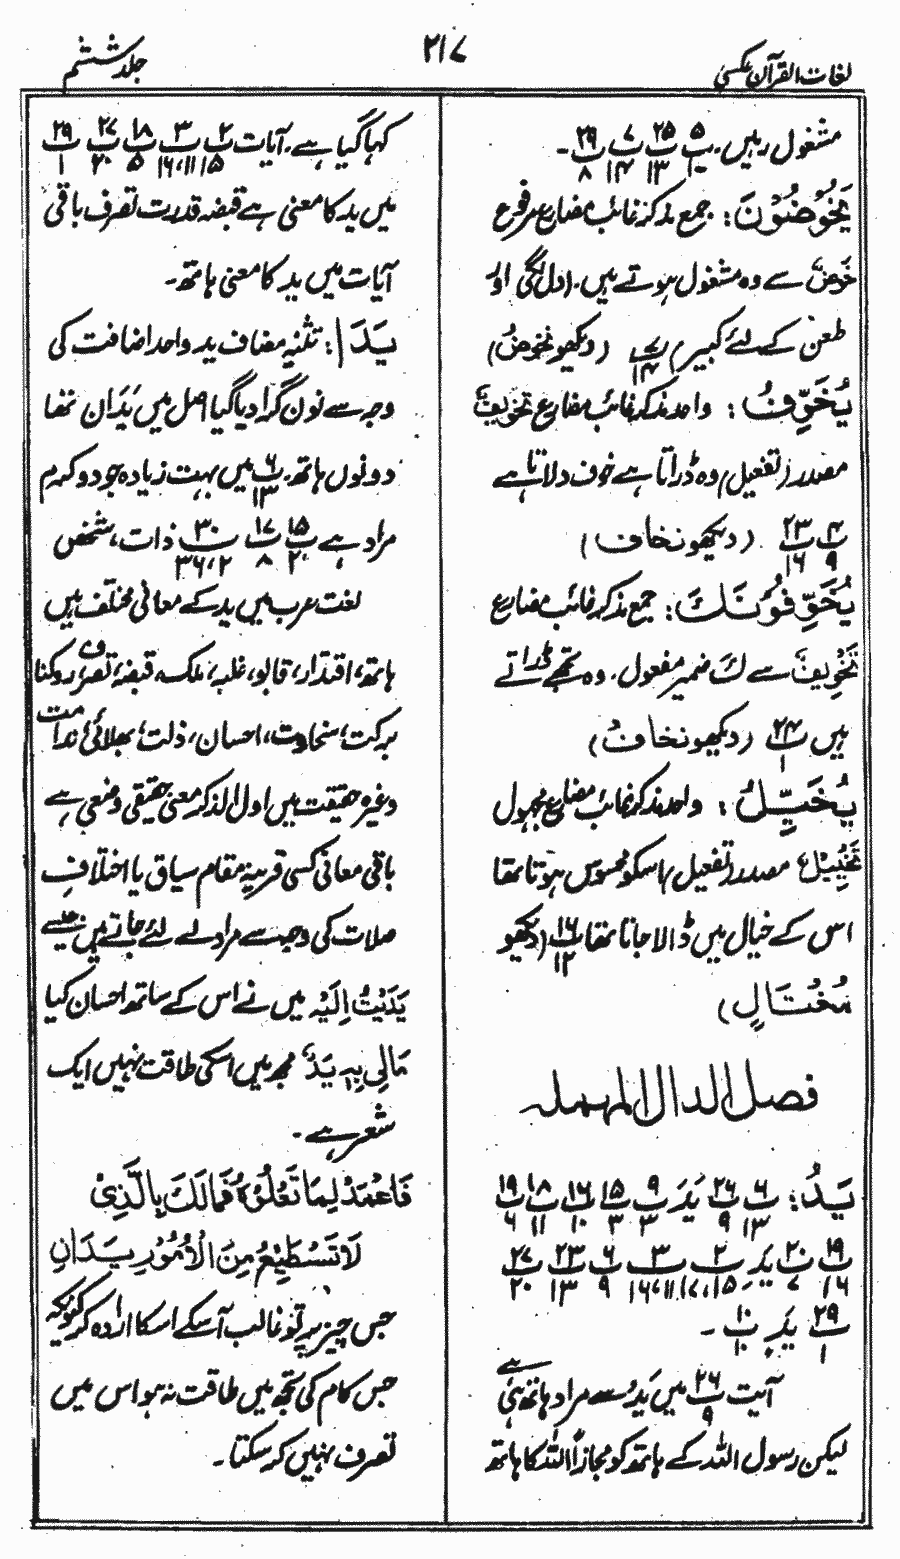 لغات القرآن عکسی
۲۱۷
جلد ششم
مشغول رہیں۔ پ۵ ۱ پ۲۵ ۱۳ پ۷ ۱۴ پ۲۹ ۸ ۔
یَخُوْضُوْنَ: جمع مذکر غائب مضارع مرفوع
خَوْضٌ سے وہ مشغول ہوتے ہیں۔ (دل لگی اور
طعن کے لئے کبیر) پ۷ ۱۴ (دیکھو نخوضُ)
یُخَوِّفُ: واحد مذکر غائب مضارع تَخْوِیْفٌ
مصدر (تفعیل) وہ ڈراتا ہے خوف دلاتا ہے
پ۴ ۹ پ۲۳ ۱۶ (دیکھو نخاف)
یُخَوِّفُوْنَكَ: جمع مذکر غائب مضارع
تَخْوِیْفٌ سے كَ ضمیر مفعول۔ وہ تجھے ڈراتے
ہیں پ۲۴ ۱ (دیکھو نخافُ)
یُخَیَّلُ: واحد مذکر غائب مضارع مجہول
تَخْیِیْلٌ مصدر (تفعیل) اسکو محسوس ہوتا تھا
اس کے خیال میں ڈالا جاتا تھا پ۱۶ ۱۲ (دیکھو
مُخْتَالٍ)
فصل الدال المہملہ
یَدُ: پ۶ ۱۳ پ۲۶ ۹ یَدَ پ۹ ۳ پ۱۵ ۳ پ۱۶ ۱۰ پ۱۸ ۱۱ پ۱۹ ۶
پ۱۹ ۱۶ پ۲۰ ۷ یَدِ پ۲ ۱۵، ۷، ۱ پ۳ ۱۱، ۱۶ پ۶ ۹ پ۲۳ ۱۳ پ۲۷ ۲۰
پ۲۹ ۱ یَدِہٖ پ۱۰ ۱۰ ۔
آیت پ۲۶ ۹ میں یَدُ سے مراد ہاتھ ہی ہے
لیکن رسول اللہ کے ہاتھ کو مجازاً اللہ کا ہاتھ
کہا گیا ہے۔ آیات پ۲ ۱۵ پ۳ ۱۱، ۱۶ پ۱۸ ۵ پ۲۷ ۲۰ پ۲۹ ۱
میں ید کا معنی ہے قبضہ قدرت تصرف باقی
آیات میں ید کا معنی ہاتھ۔
یَدَا: تثنیہ مضاف ید واحد اضافت کی
وجہ سے نون گرا دیا گیا اصل میں یَدَانِ تھا
دونوں ہاتھ۔ پ۶ ۱۳ میں بہت زیادہ جود و کرم
مراد ہے پ۱۵ ۲۰ پ۱۷ ۸ پ۳۰ ۲، ۳۶ ذات، شخص
لغت عرب میں ید کے معانی مختلف ہیں
ہاتھ، اقتدار، قابو، غلبہ، ملک، قبضہ، تصرف، روکنا
برکت، سخاوت، احسان، ذلت، بھلائی، ندامت
وغیرہ حقیقت میں اول الذکر معنی حقیقی وضعی ہے
باقی معانی کسی قرینہ مقام سیاق یا اختلاف
صلات کی وجہ سے مراد لے لئے جاتے ہیں جیسے
یَدَیْتُ اِلَیْہِ میں نے اس کے ساتھ احسان کیا
مَالِیْ بِہٖ یَدٌ مجھ میں اسکی طاقت نہیں ایک
شعر ہے۔
فَاعْمَدْ لِمَا تَعْلُوْا فَمَا لَكَ بِالَّذِیْ
لَا تَسْتَطِیْعُ مِنَ الْاُمُوْرِ یَدَانِ
جس چیز پر تو غالب آسکے اسکا ارادہ کر کیونکہ
جس کام کی تجھ میں طاقت نہ ہو اس میں
تصرف نہیں کر سکتا۔